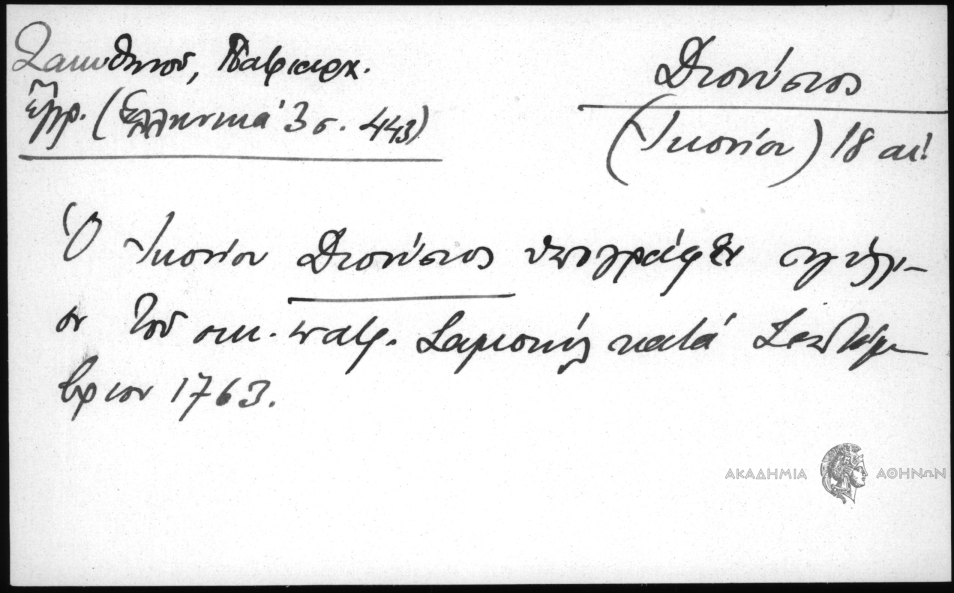 Ζακυθηνοῦ, Πατριαρχ.
ἔγγρ. (Ἑλληνικά 3 σ. 443)
Διονύσιος
(Ἰκονίου) 18 αι!
Ὁ Ἰκονίου Διονύσιος ὑπογράφει σιγίλλι-
ον τοῦ οικ. πατρ. Σαμουήλ κατά Σεπτέμ-
βριον 1763.
ΑΚΑΔΗΜΙΑ ΑΘΗΝΩΝ